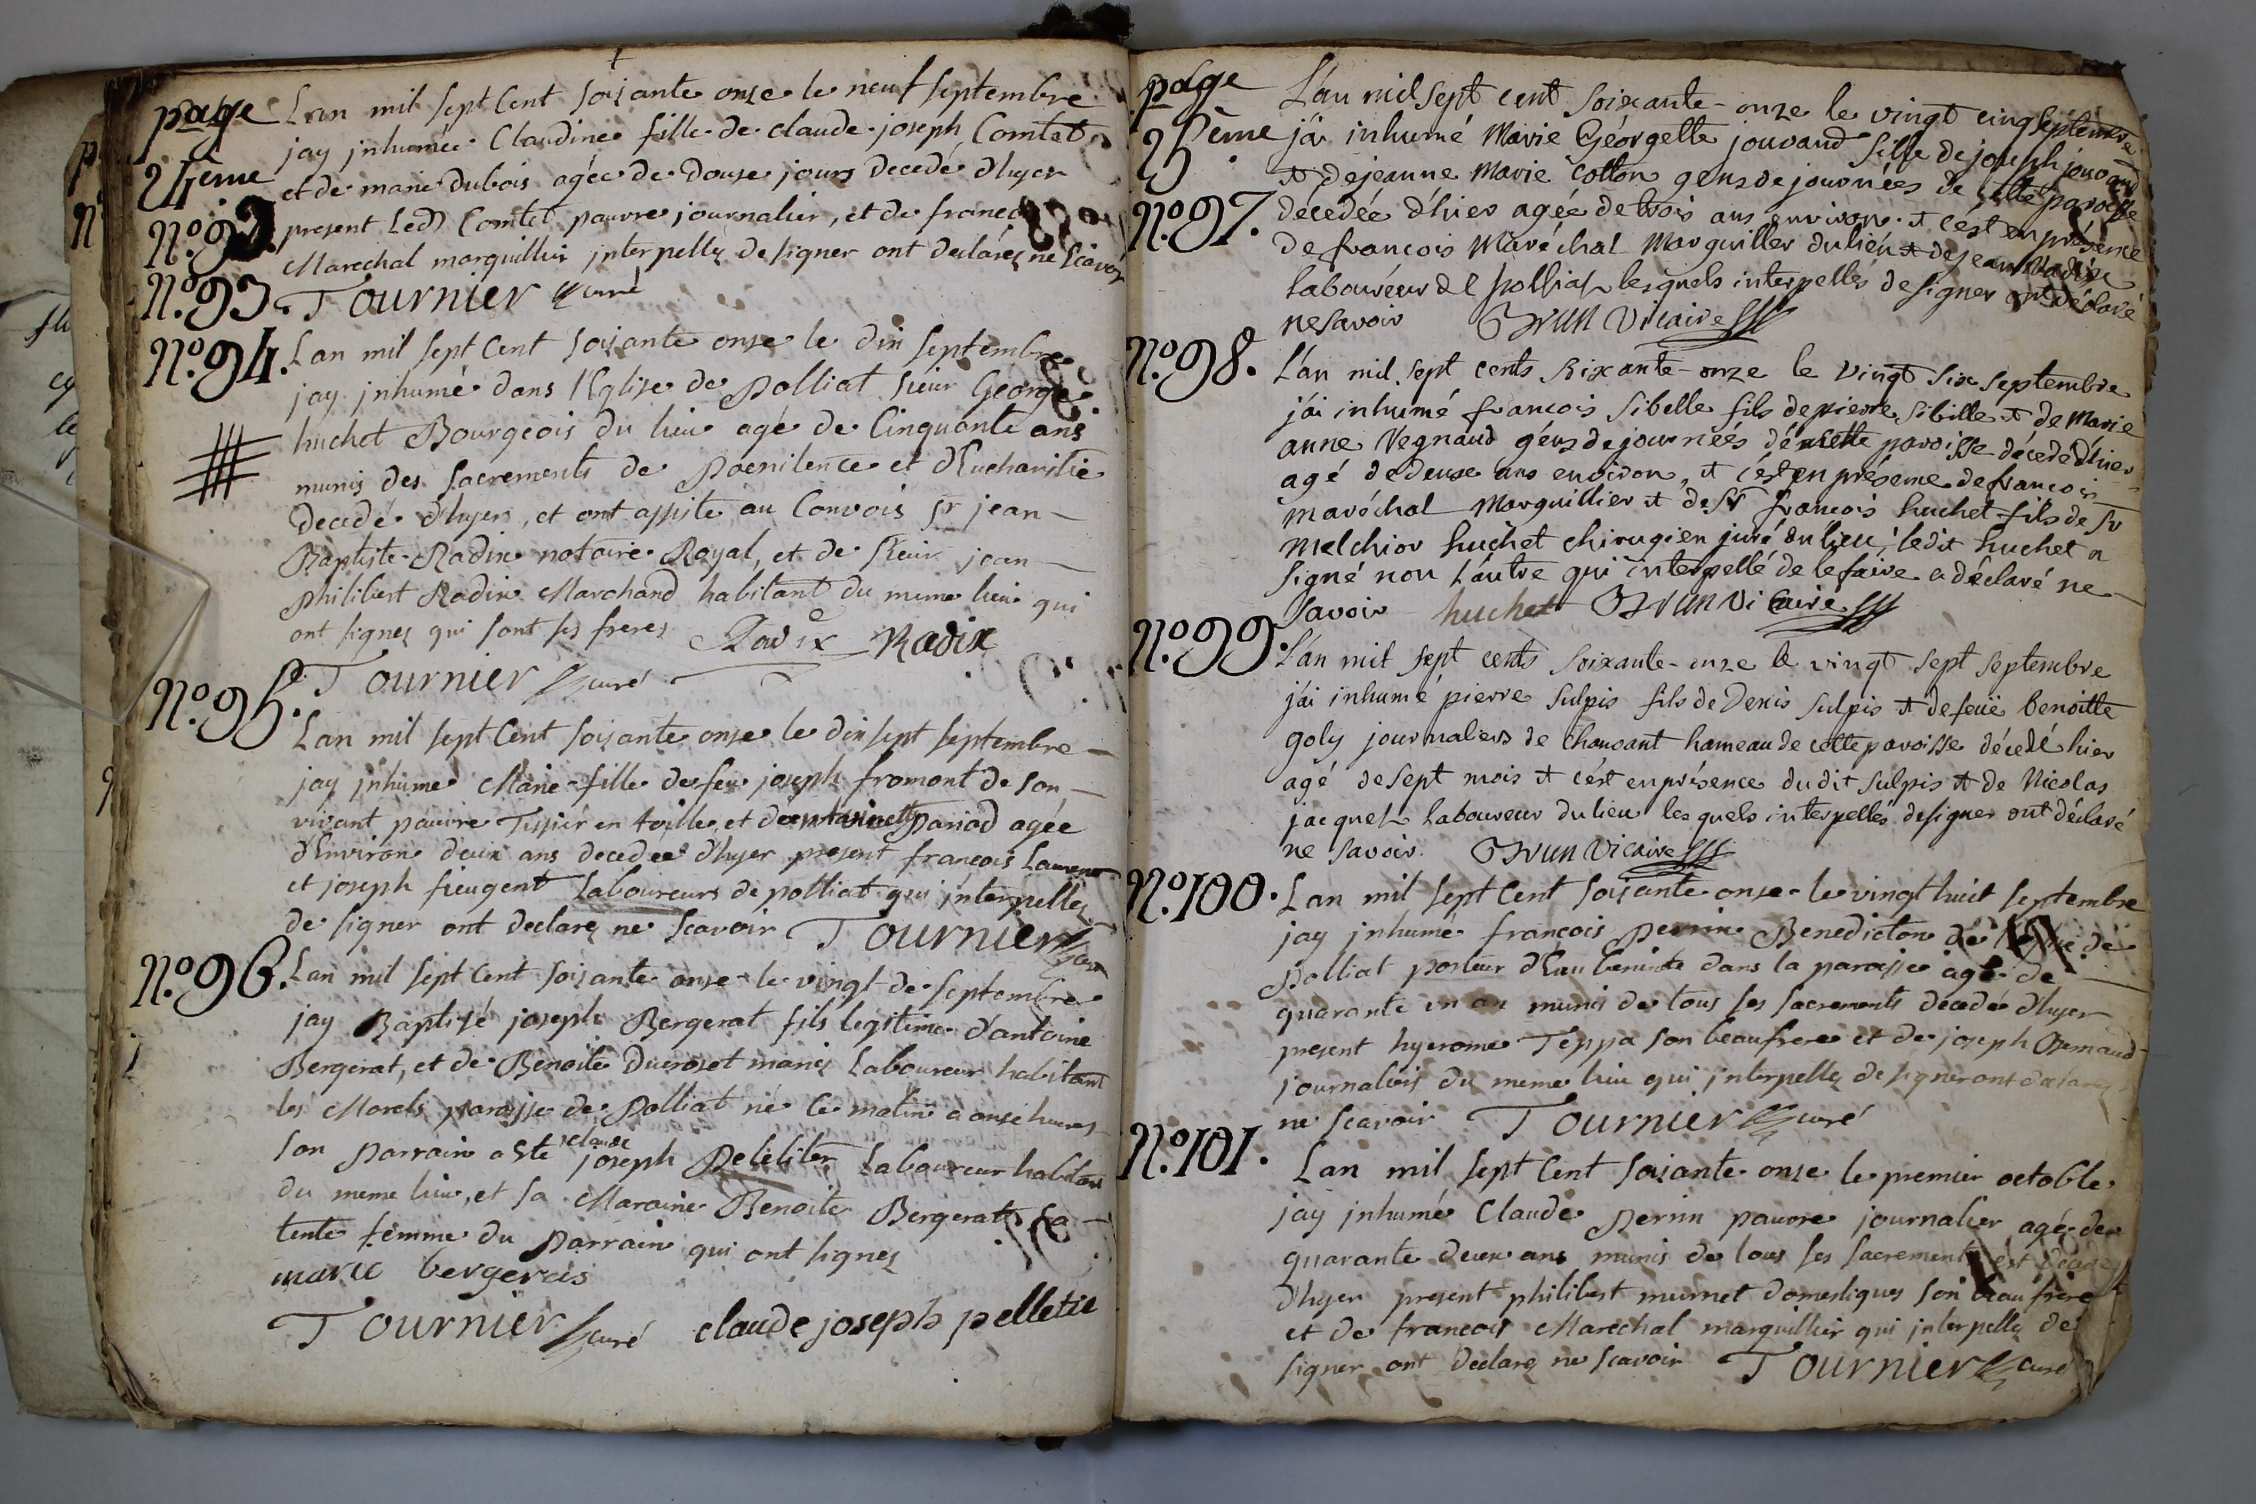 page
24eme
N.o 92
Lan mil sept Cent soisante onse le neuf septembre
jay jnhumée Claudine fille de claude joseph Comtet
et de marie dubois agée de douse jours decedé d'hyer
present Led Comtet pauvre journalier, et de francois
Marechal marguillier jnterpellez de signer ont declarez ne scavoir
N.o 93.
Tournier curé
N.o 94.
Lan mil sept Cent soisante onse le dix septembre
jay jnhumé dans l'Eglise de Polliat sieur George
huchet Bourgeois du lieu agé de Cinquante ans
munis des sacrements de Poenitence et d'Eucharistie
decedé d'hyer, et ont assiste au Convois sr jean
Baptiste Radix notaire Royal, et de sieur jean
Philibert Radix Marchand habitant du meme lieu qui
ont signez qui sont ses freres Radix Radix
Tournier curé
N.o 95.
Lan mil sept Cent soisante onse le dix sept septembre
jay jnhumé Marie fille de feu joseph fromont de son
vivant pauvre Tissier en toille et de paniod agée
d'Environ deux ans decedee d'hyer present francois Laurent
et joseph fieugent Laboureurs de polliat qui jnterpellez
de signer ont declarez ne scavoir Tournier curé
N.o 96.
Lan mil sept Cent soisante onse le vingt de septembre
jay Baptisé joseph Bergerat fils legitime d'antoine
Bergerat, et de Benoite Ducroset mariez Laboureur habitant
les Morels paroisse de Polliat né ce matin a onse heures
son Parrain a Ete claude joseph Peletiter Laboureur habitant
du meme lieu, et sa Maraine Benoite Bergerat sa
tente femme du Parrain qui ont signez
marie bergeras
Tournier curé claude joseph pelletie
page
25eme
L'an mil sept cent soixante-onze le vingt cinq septembre
j'ai inhumé Marie Géorgette jouvand fille de joseph jouvand
et de jeanne Marie Cotton gens de journées de cette paroisse
N.o 97.
décedée d'hier agée de trois ans environ et c'est en présence
de francois Maréchal Marguillier du lieu et de jean Radix
laboureur de polliat lesquels interpellés de signer ont déclaré
ne savoir Brun Vicaire
N.o 98.
L'an mil sept cents soixante-onze le vingt six septembre
j'ai inhumé francois sibelle fils de pierre sibille et de Marie
anne Vegnaud géns de journéés dé cette paroisse décedé d'hier
agé de deuxe ans environ, et c'est en présence de francois
maréchal Marguillier et de sr francois huchet fils de sr
Melchior huchet chirugien juré du lieu; ledit huchet a
signé non l'autre qui interpellé de le faire a déclaré ne
savoir huchet Brun Vicaire
N.o 99.
L'an mil sept cents soixante-onze le vingt sept septembre
j'ai inhumé pierre sulpis fils de Denis sulpis et de feüe benoitte
goly journaliers de Chanoant hameau de cette paroisse décedé hier
agé de sept mois et c'est en présence dudit sulpis et de Nicolas
jacquet Laboureur du lieu lesquels interpellés de signer ont déclaré
ne savoir. Brun Vicaire
N.o 100.
Lan mil sept Cent soisante onse le vingt huit septembre
jay jnhumé françois Perrin Benedicton de de
Polliat porteur d'Eau beninte dans la paroisse agé de
quarante un an munis de tous ses sacrements decedé d'hyer
present hyerome Teppa son beaufrere et de joseph Armaud
journaliers du meme lieu qui jnterpellez de signer ont declarez
ne scavoir Tournier curé
N.o 101.
Lan mil sept Cent soisante onse le premier octobre
jay jnhumé Claude Perrin pauvre journalier agé de
quarante deux ans munis de tous ses sacrements est decedé
d'hyer present philibert murnet domestiques son beaufrere
et de francois Marechal marguillier qui jnterpellez de
signer ont declarez ne scavoir Tournier curé